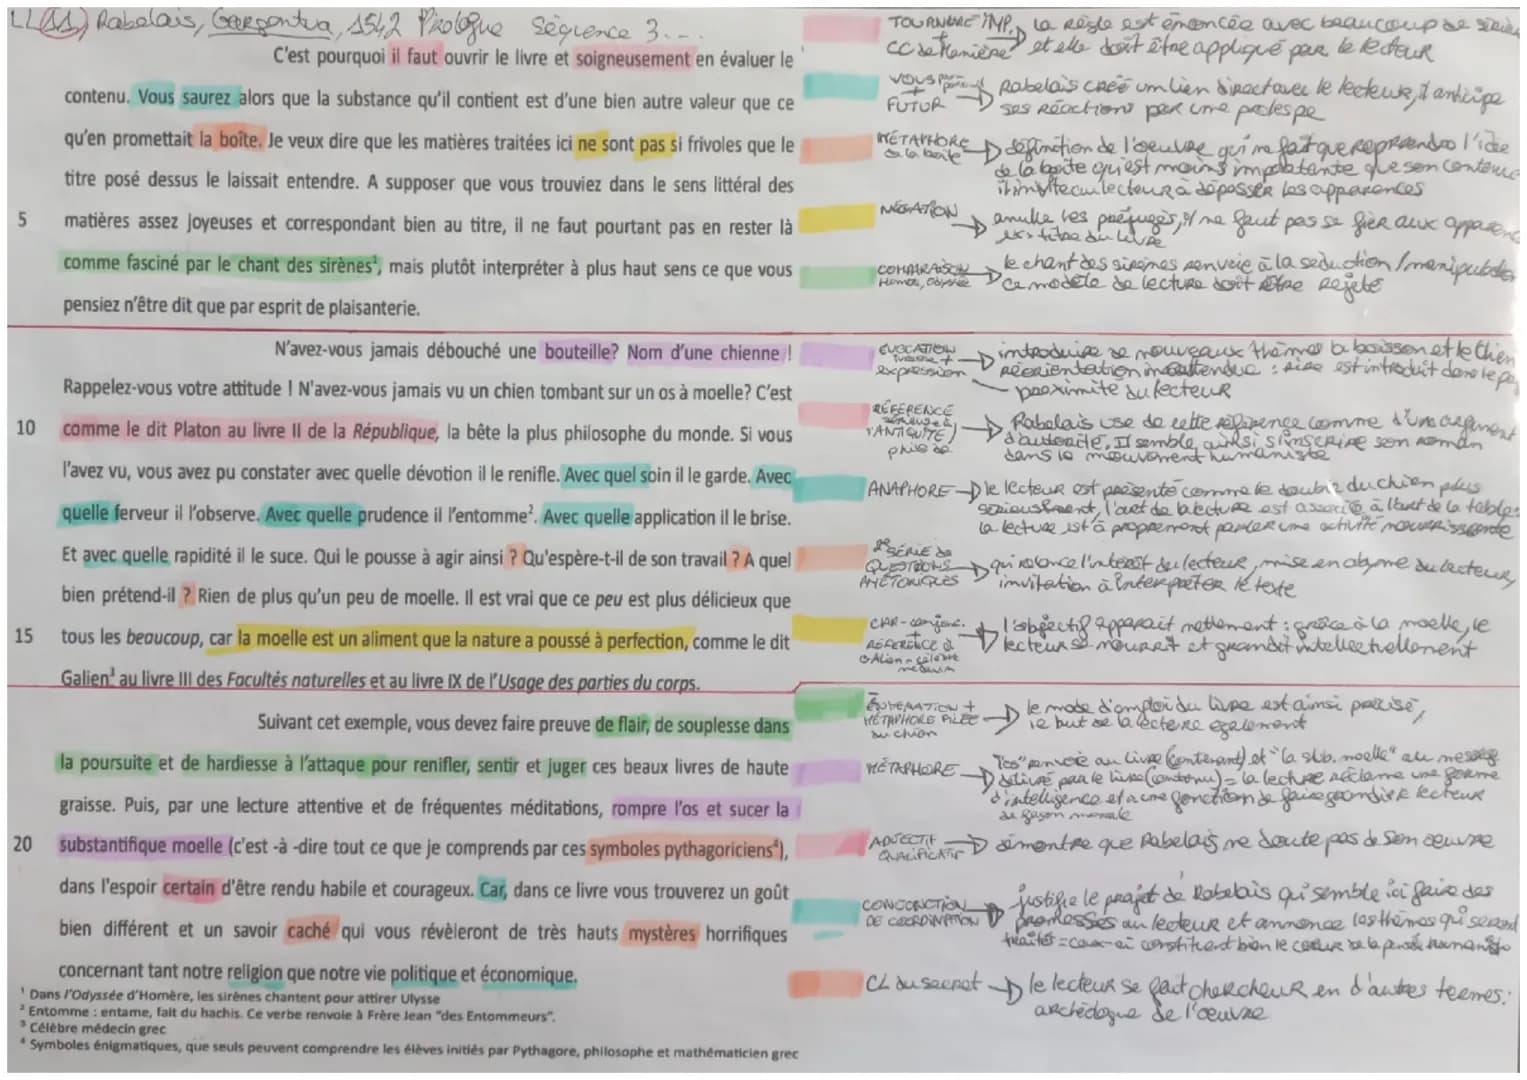 LL(11) Rabelais, Gargantua, 1542 Prologue Séquence 3...
C'est pourquoi il faut ouvrir le livre et soigneusement en évaluer le
contenu. Vous saurez alors que la substance qu'il contient est d'une bien autre valeur que ce
qu'en promettait la boîte. Je veux dire que les matières traitées ici ne sont pas si frivoles que le
titre posé dessus le laissait entendre. A supposer que vous trouviez dans le sens littéral des
5 matières assez joyeuses et correspondant bien au titre, il ne faut pourtant pas en rester là
comme fasciné par le chant des sirènes¹, mais plutôt interpréter à plus haut sens ce que vous
pensiez n'être dit que par esprit de plaisanterie.
N'avez-vous jamais débouché une bouteille? Nom d'une chienne !
Rappelez-vous votre attitude ! N'avez-vous jamais vu un chien tombant sur un os à moelle? C'est
10 comme le dit Platon au livre II de la République, la bête la plus philosophe du monde. Si vous
l'avez vu, vous avez pu constater avec quelle dévotion il le renifle. Avec quel soin il le garde. Avec
quelle ferveur il l'observe. Avec quelle prudence il l'entomme². Avec quelle application il le brise.
Et avec quelle rapidité il le suce. Qui le pousse à agir ainsi ? Qu'espère-t-il de son travail ? A quel
bien prétend-il ? Rien de plus qu'un peu de moelle. Il est vrai que ce peu est plus délicieux que
15 tous les beaucoup, car la moelle est un aliment que la nature a poussé à perfection, comme le dit
Galien³ au livre III des Facultés naturelles et au livre IX de l'Usage des parties du corps.
Suivant cet exemple, vous devez faire preuve de flair, de souplesse dans
la poursuite et de hardiesse à l'attaque pour renifler, sentir et juger ces beaux livres de haute
graisse. Puis, par une lecture attentive et de fréquentes méditations, rompre l'os et sucer la
20 substantifique moelle (c'est -à -dire tout ce que je comprends par ces symboles pythagoriciens⁴),
dans l'espoir certain d'être rendu habile et courageux. Car, dans ce livre vous trouverez un goût
bien différent et un savoir caché qui vous révèleront de très hauts mystères horrifiques
concernant tant notre religion que notre vie politique et économique.
¹ Dans l'Odyssée d'Homère, les sirènes chantent pour attirer Ulysse
² Entomme : entame, fait du hachis. Ce verbe renvoie à Frère Jean "des Entommeurs".
³ Célèbre médecin grec
⁴ Symboles énigmatiques, que seuls peuvent comprendre les élèves initiés par Pythagore, philosophe et mathématicien grec
TOURNURE IMP. + CC de manière → la règle est énoncée avec beaucoup de
et elle doit être appliqué par le lecteur
VOUS + FUTUR → Rabelais créé un lien direct avec le lecteur, il anticipe
ses réactions par une prolepse
MÉTAPHORE de la boîte → définition de l'oeuvre qui ne fait que reprendre l'idée
de la boîte qu'est moins importante que son contenu
il invite au lecteur à dépasser les apparences
NÉGATION → annule les préjugés, il ne faut pas se fier aux
ex : titre du livre
COMPARAISON → le chant des sirènes renvoie à la séduction / manipulation
Homère, Odyssée ce modèle de lecture doit être rejeté
EVOCATION + expression → introduire de nouveaux thèmes la boisson et le chien
réorientation inattendue : rire est introduit dans le
proximité du lecteur
RÉFÉRENCE sérieuse à l'ANTIQUITÉ → Rabelais use de cette référence comme d'un argument
d'autorité. Il semble ainsi s'inscrire son roman
dans le mouvement humaniste
ANAPHORE → le lecteur est présenté comme le double du chien plus
sérieusement, l'art de la lecture est associé à l'art de la table:
la lecture est à proprement parler une activité nourrissante
2e SÉRIE DE QUESTIONS RHÉTORIQUES → qui relance l'intérêt du lecteur, mise en abyme du lecteur,
invitation à interpréter le texte
CAR - conjonc. + RÉFÉRENCE à Galien = célèbre médecin → l'objectif apparaît nettement : grâce à la moelle, le
lecteur se nourrit et grandit intellectuellement
ÉNUMÉRATION + MÉTAPHORE FILÉE du chien → le mode d'emploi du livre est ainsi précisé,
le but de la lecture également
MÉTAPHORE → "os" renvoie au livre (contenant) et "la sub. moelle" au message
délivré par le livre (contenu) = la lecture réclame une forme
d'intelligence et a une fonction de faire grandir le lecteur
de façon morale
ADJECTIF QUALIFICATIF → démontre que Rabelais ne doute pas de son oeuvre
CONJONCTION DE COORDINATION → justifie le projet de Rabelais qui semble ici faire des
promesses au lecteur et annonce les thèmes qui seront
traités = ceux-ci constituent bien le coeur de la pensée humaniste
CL du secret → le lecteur se fait chercheur en d'autres termes:
archéologue de l'oeuvre